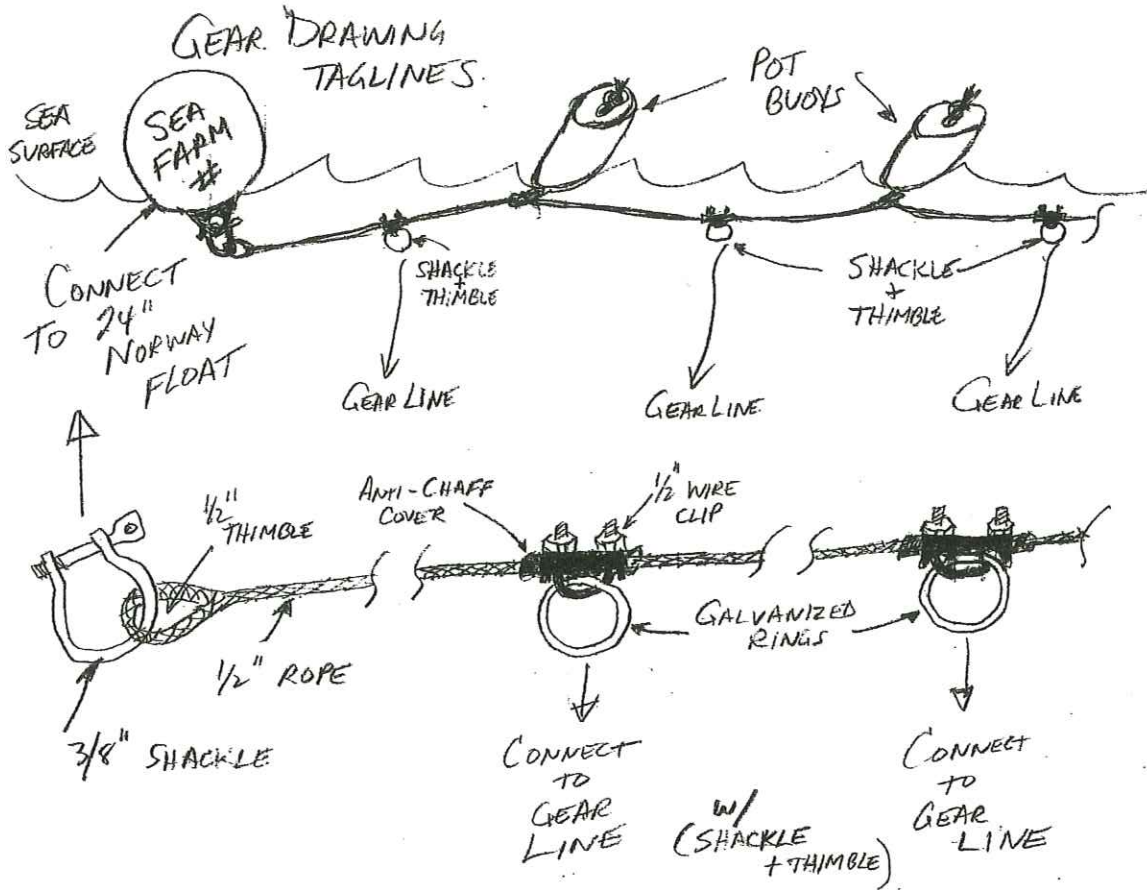 GEAR DRAWING
TAGLINES.
SEA
SURFACE
SEA
FARM
#
POT
BUOYS
CONNECT
TO 24"
NORWAY
FLOAT
SHACKLE
+
THIMBLE
SHACKLE
+
THIMBLE
GEAR LINE
GEAR LINE
GEAR LINE
1/2"
THIMBLE
ANTI-CHAFF
COVER
1/2" WIRE
CLIP
GALVANIZED
RINGS
1/2" ROPE
3/8" SHACKLE
CONNECT
TO
GEAR
LINE
w/
(SHACKLE
+ THIMBLE)
CONNECT
TO
GEAR
LINE